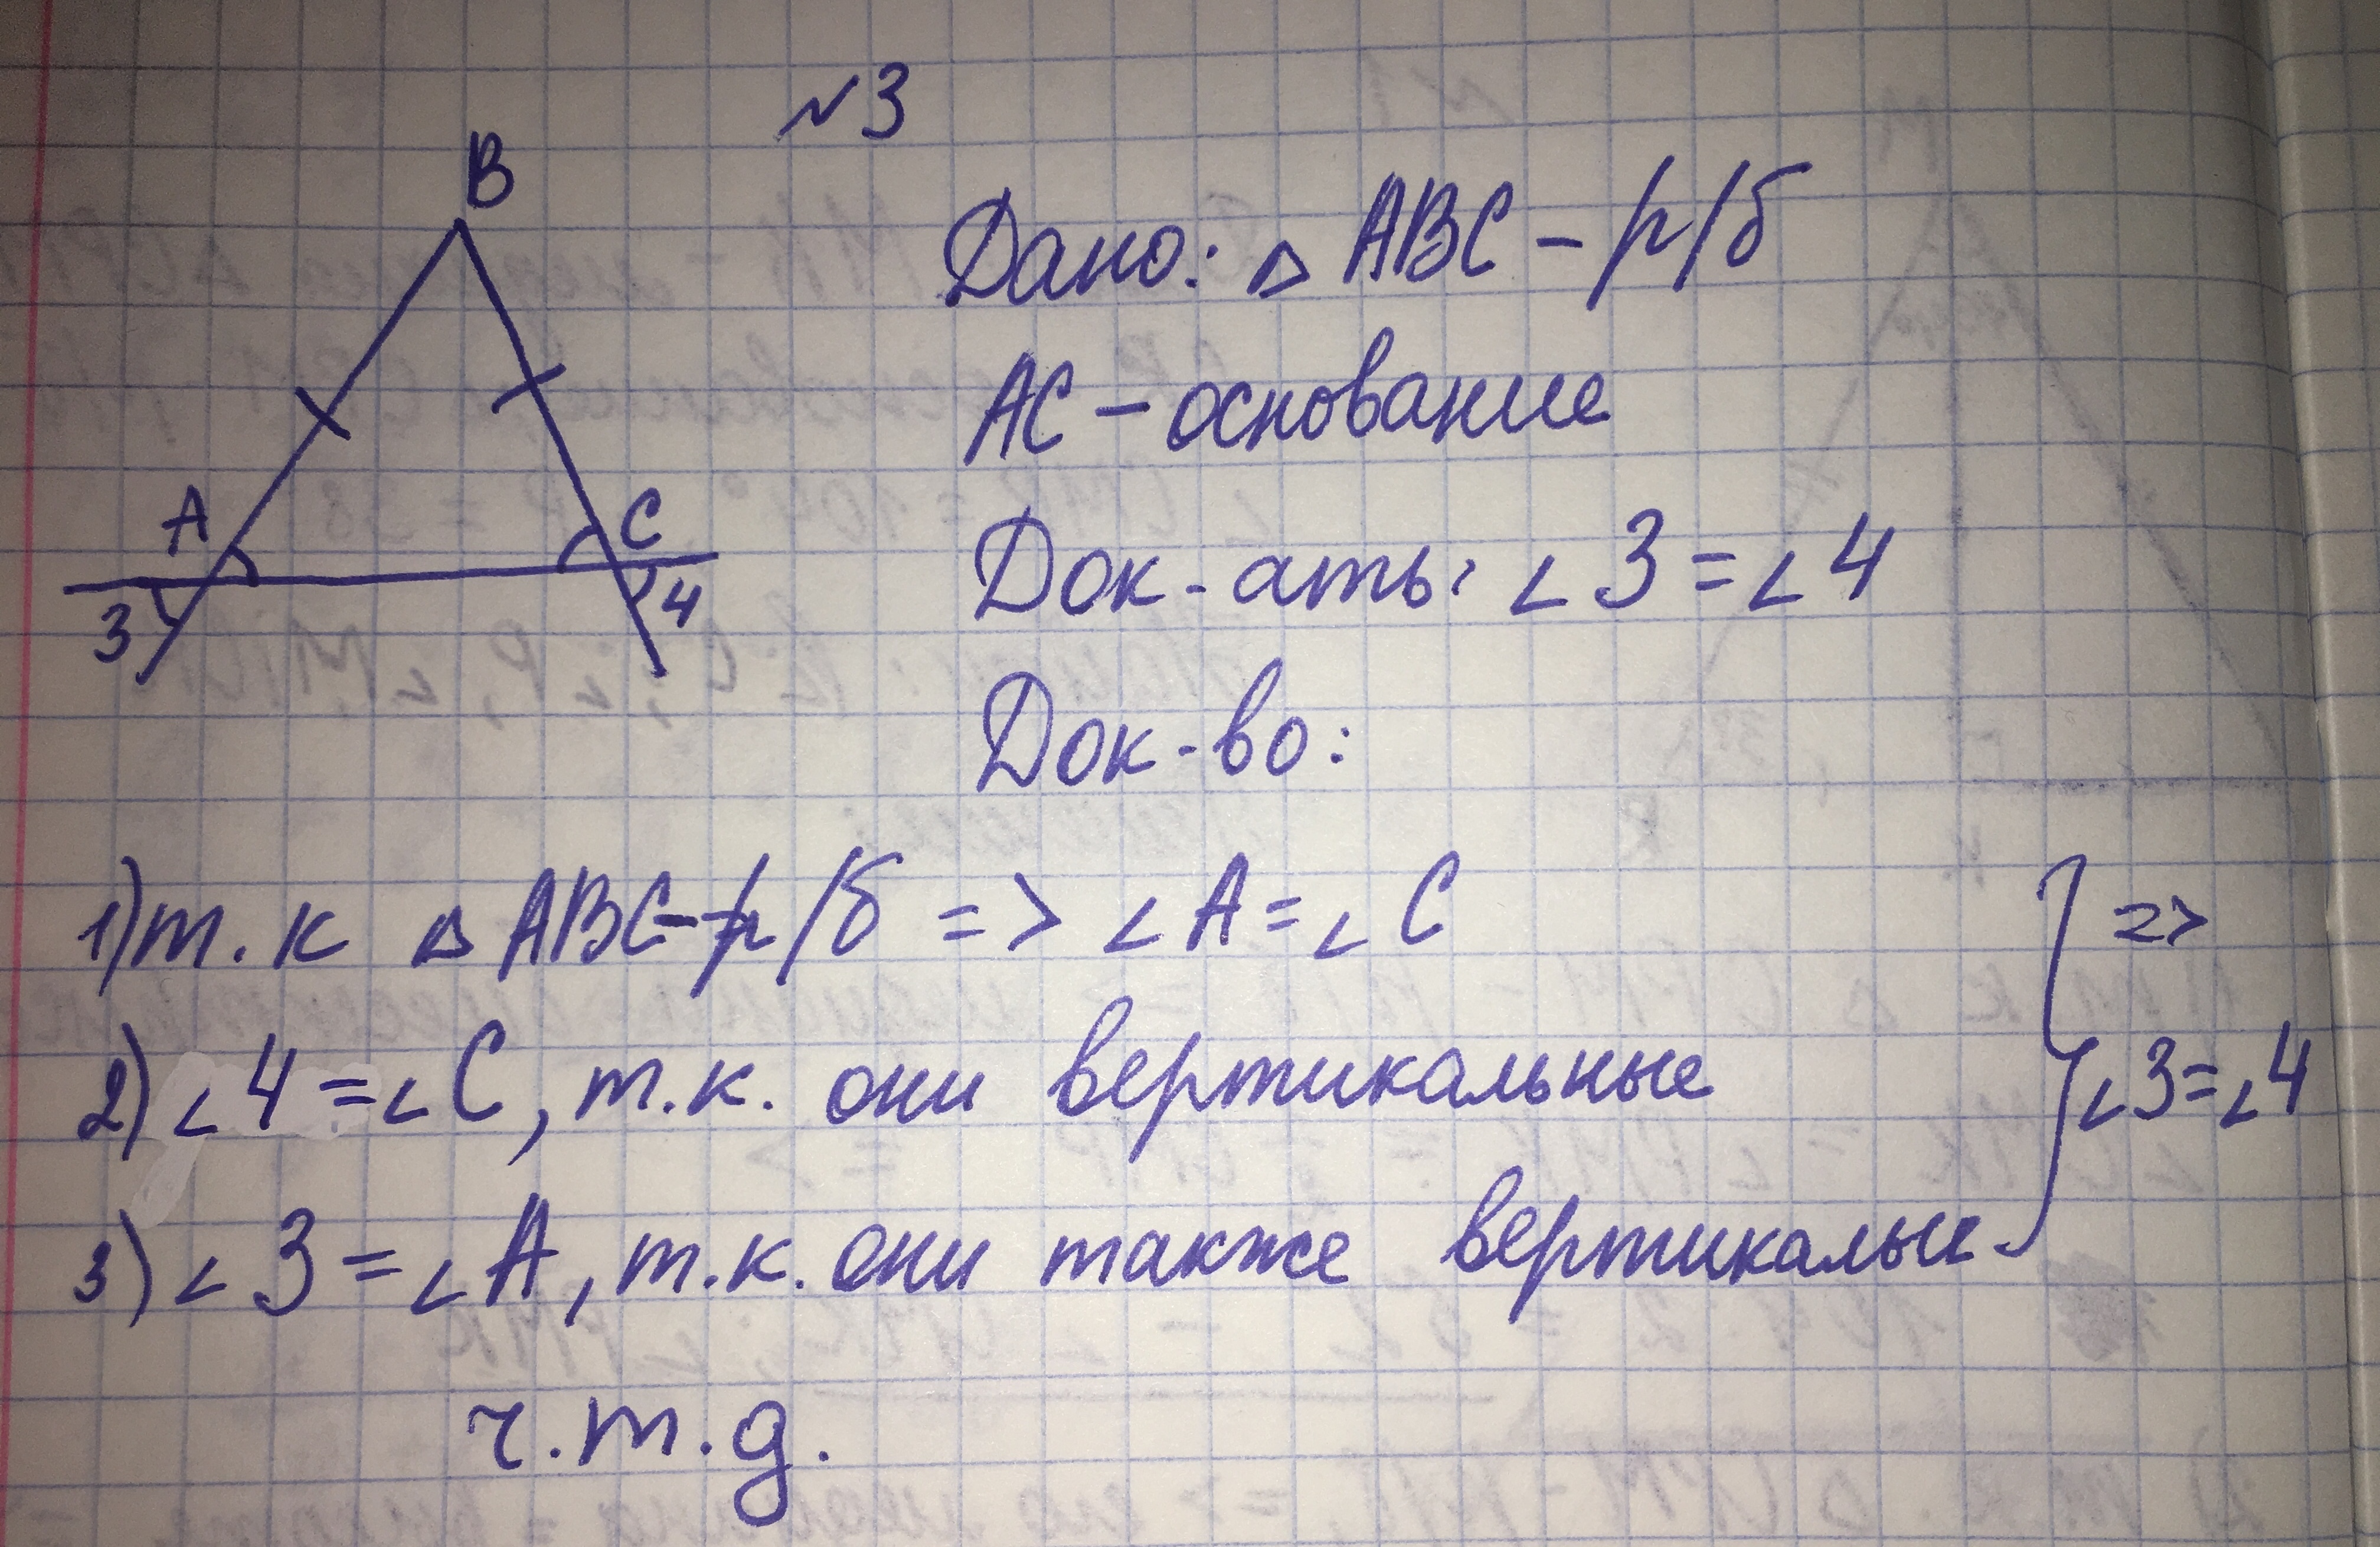 №3
B
A
C
3
4
Дано: △ ABC – р/б
AC – основание
Док-ать: ∠3=∠4
Док-во:
1) т.к △ ABC – р/б => ∠A=∠C
2) ∠4=∠C, т.к. они вертикальные
3) ∠3=∠A, т.к. они также вертикалые
=>
∠3=∠4
ч.т.д.